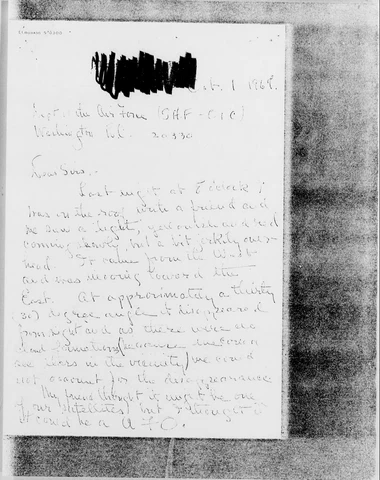 Oct. 1 1968.
Dept. of the Air Force (SAF-OIC)
Washington D.C. 20330
Dear Sirs,
Last night at 8 o'clock I
was on the roof with a friend and
we saw a light, yellowish and red
coming slowly, but a bit jerkily over-
head. It came from the West
and was moving toward the
East. At approximately a thirty
(30) degree angle it disappeared
from sight and as there were no
cloud formations
see stars in the vicinity) we could
not account for the disappearance.
My friend thought it might be one
of our satellites, but I thought
it could be a U F O.